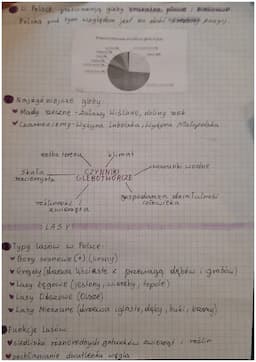 W Polsce przeważają gleby brunatne, płowe i bielicowe
Polska pod tym względem jest
Najżyźniejsze gleby:
Mady rzeczne - Żuławy Wiślane, doliny rzek
Czarnoziemy - Wyżyna Lubelska, Wyżyna Małopolska
rzeźba terenu klimat
skała macierzysta CZYNNIKI GLEBOTWÓRCZE stosunki wodne
roślinność i zwierzęta gospodarcza działalność człowieka
LASY
Typy lasów w Polsce:
Bory sosnowe (+) (świerki)
Grądy (drzewa liściaste z przewagą dębów i grabów)
Lasy Łęgowe (jesiony, wierzby, topole)
Lasy Olsowe (Olsze)
Lasy Mieszane (drzewa iglaste, dęby, buki, brzozy)
Funkcje lasów:
siedliska różnorodnych gatunków zwierząt i roślin
pochłanianie dwutlenku węgla